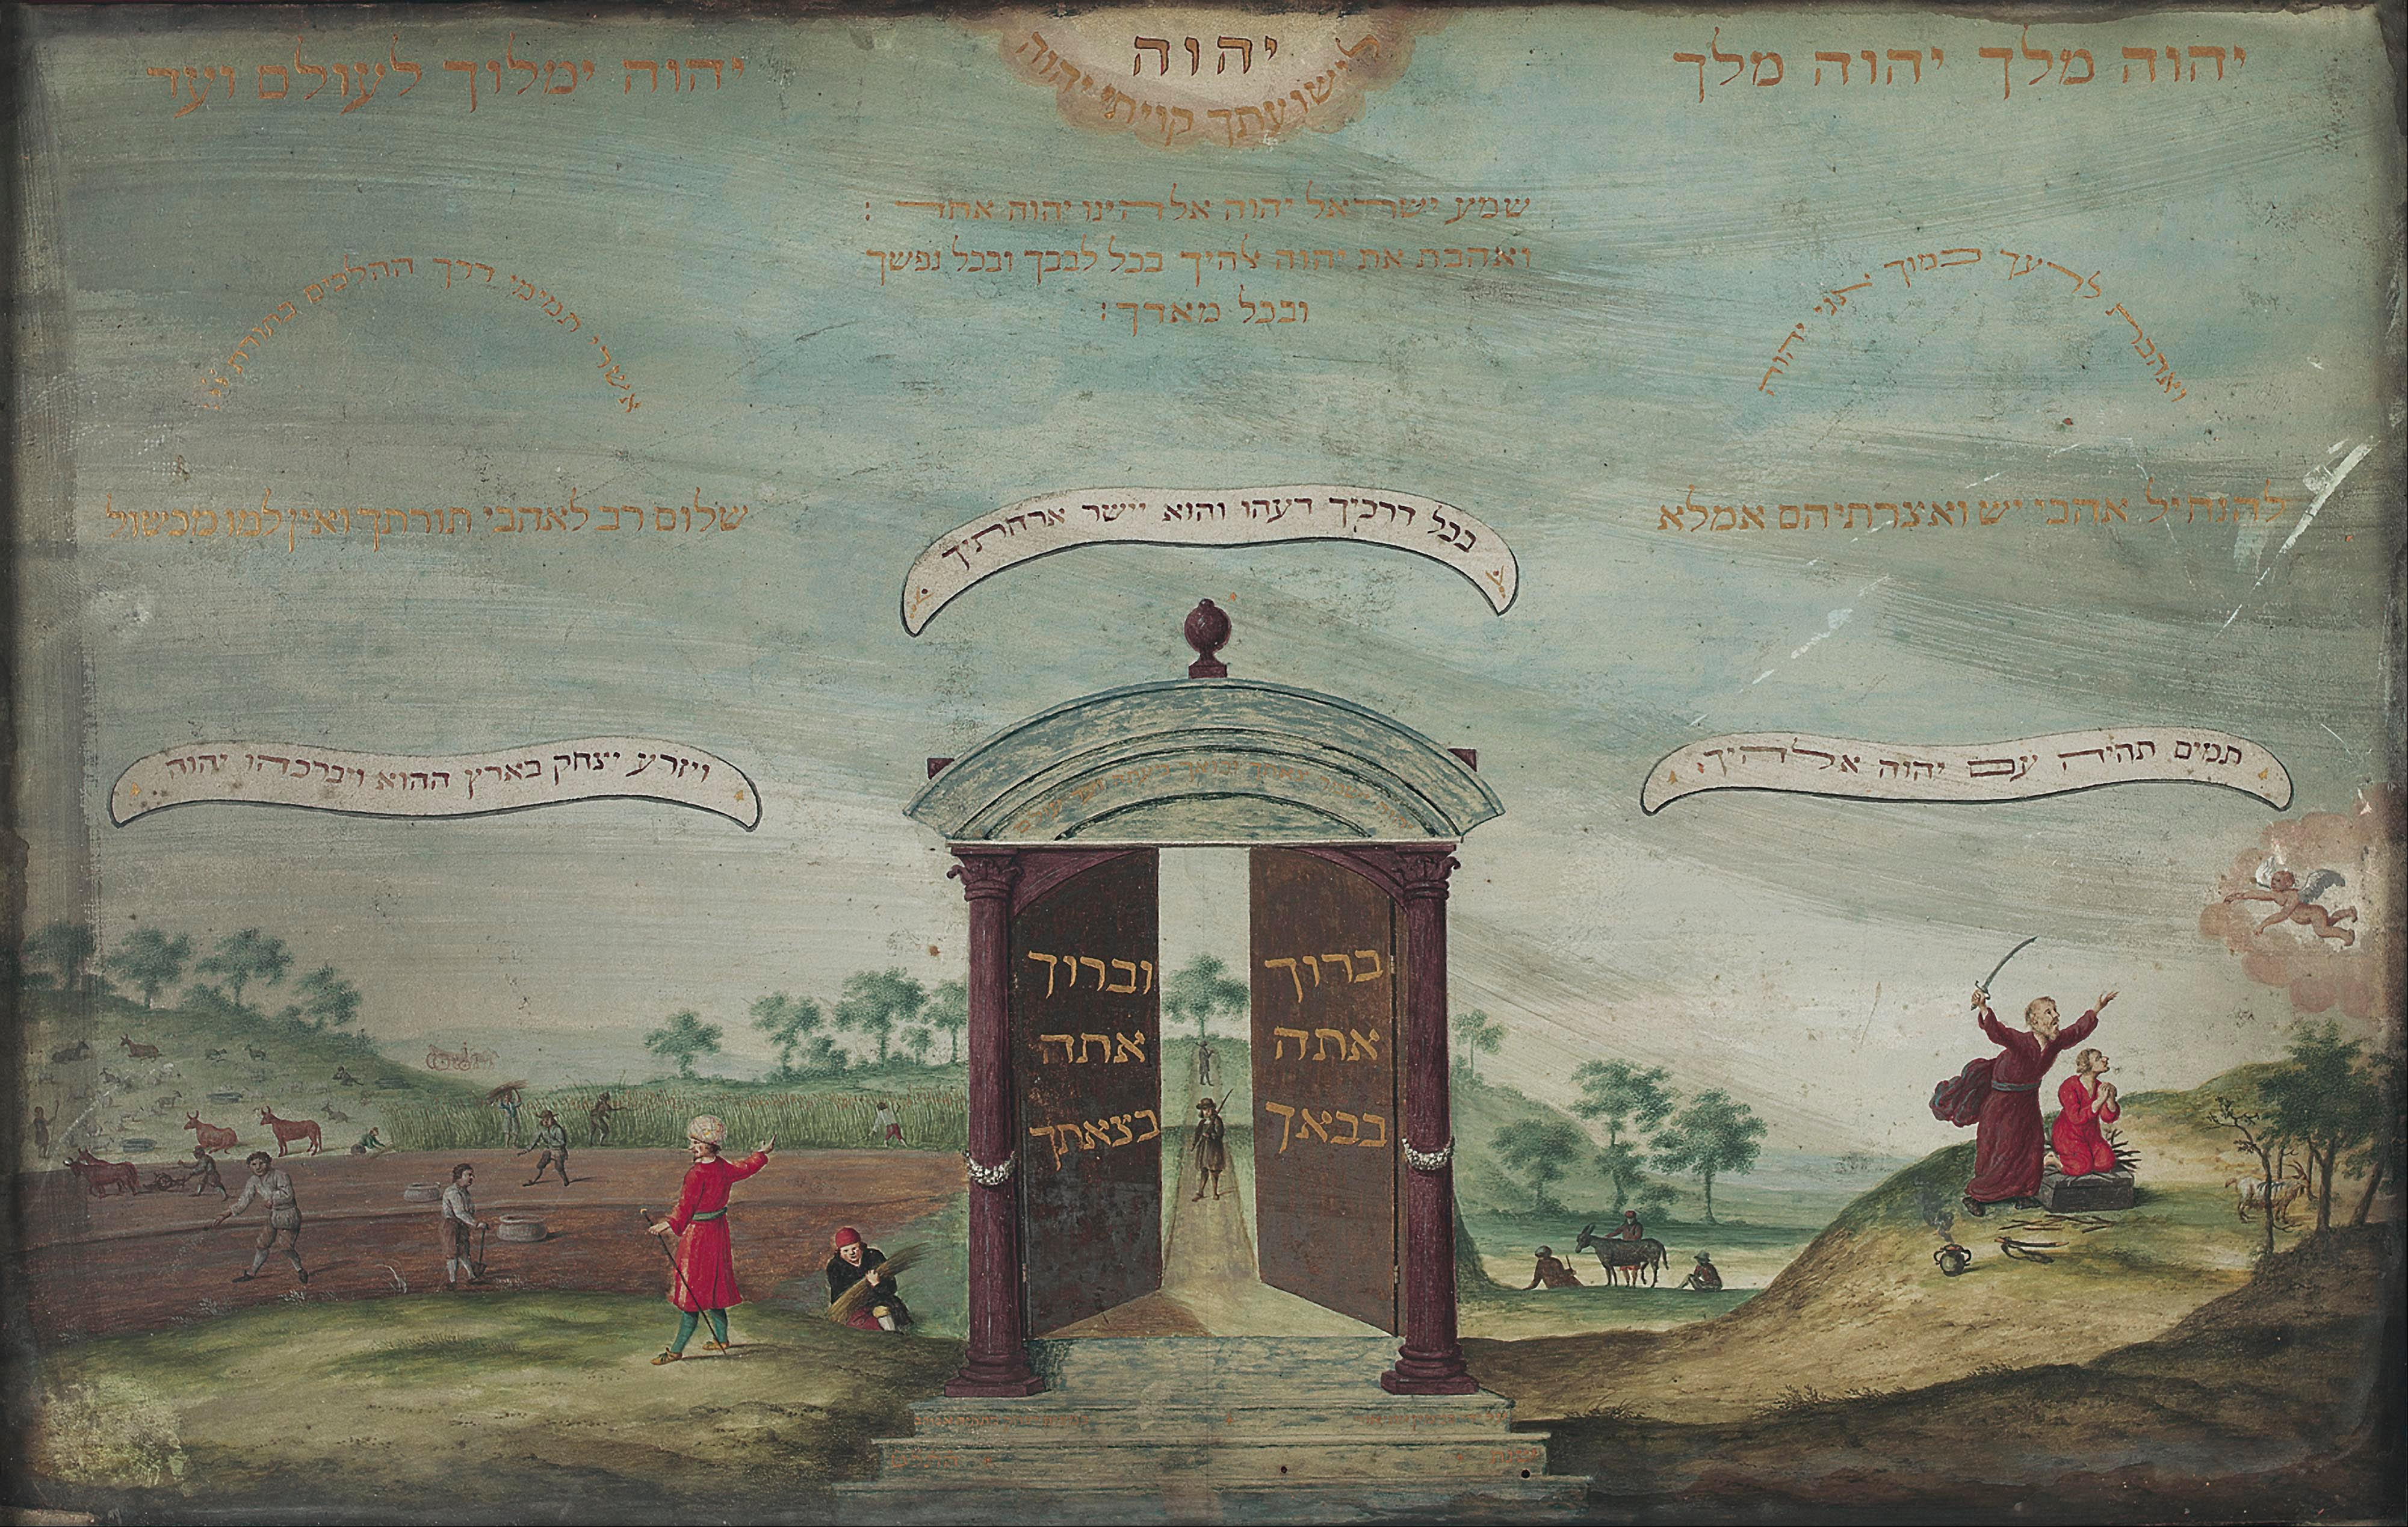 יהוה מלך יהוה מלך
יהוה
לישועתך קויתי יהוה
יהוה ימלוך לעולם ועד
שמע ישראל יהוה אלהינו יהוה אחד :
ואהבת את יהוה אלהיך בכל לבבך ובכל נפשך
ובכל מאדך :
ואהבת לרעך כמוך אני יהוה
אשרי תמימי דרך ההלכים בתורת
להנחיל אהבי יש ואצרתיהם אמלא
בכל דרכיך דעהו והוא יישר ארחתיך
שלום רב לאהבי תורתך ואין למו מכשול
תמים תהיה עם יהוה אלהיך
ויזרע יצחק בארץ ההוא ויברכהו יהוה
ישמר צאתך ובואך מעתה ועד עולם
ברוך
אתה
בבאך
וברוך
אתה
בצאתך